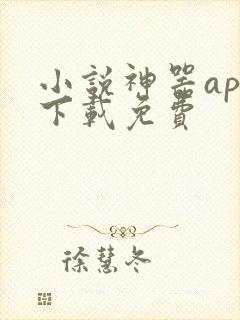 小説神器ap
下載免費
徐慧冬